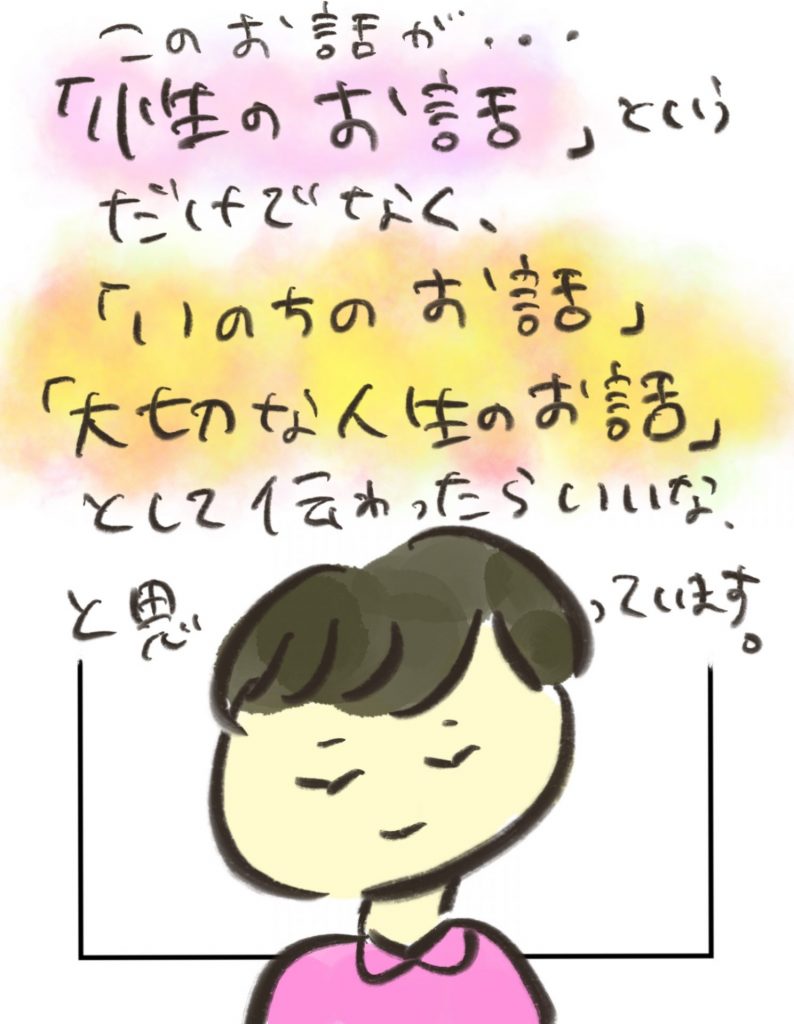 このお話が・・・
「性のお話」という
だけでなく、
「いのちのお話」
「大切な人生のお話」
として伝わったらいいな、
と思っています。